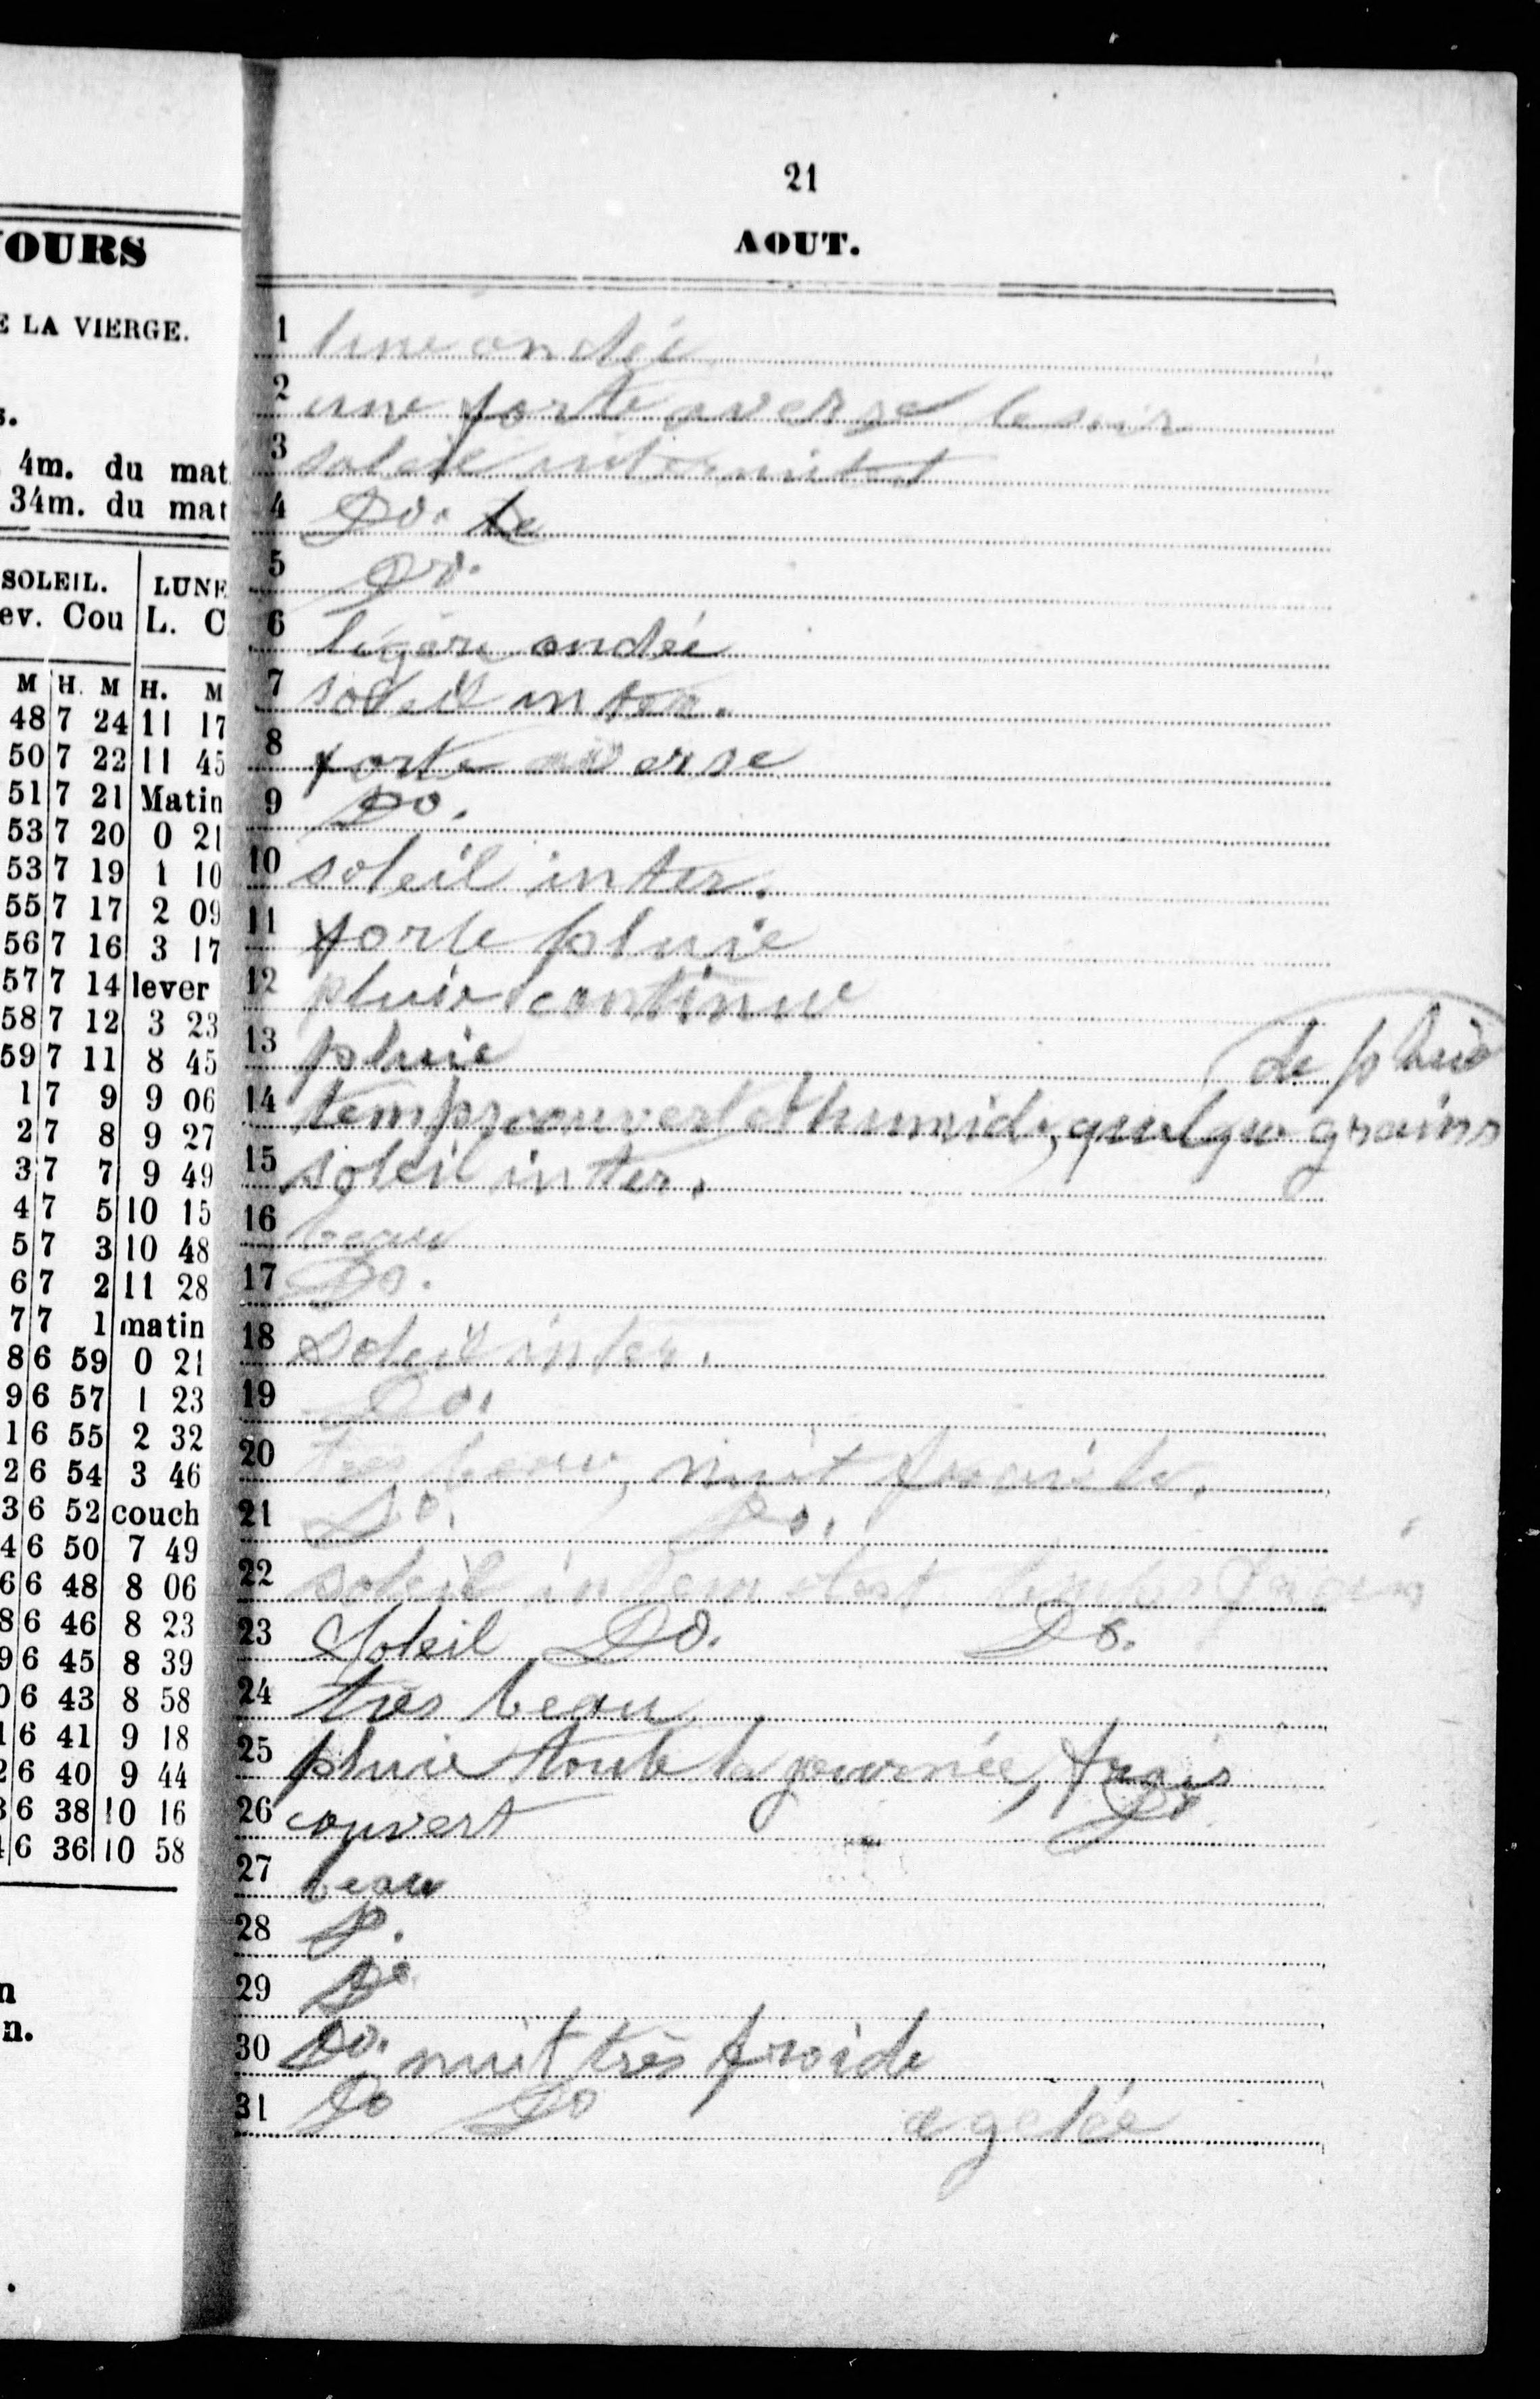 OURS
E LA VIERGE.
s.
4m. du mat
34m. du mat
SOLEIL. LUNE
ev. Cou L. C
M H. M H. M
48 7 24 11 17
50 7 22 11 45
51 7 21 Matin
53 7 20 0 21
53 7 19 1 10
55 7 17 2 09
56 7 16 3 17
57 7 14 lever
58 7 12 3 23
59 7 11 8 45
1 7 9 9 06
2 7 8 9 27
3 7 7 9 49
4 7 5 10 15
5 7 3 10 48
6 7 2 11 28
7 7 1 matin
8 6 59 0 21
9 6 57 1 23
1 6 55 2 32
2 6 54 3 46
3 6 52 couch
4 6 50 7 49
6 6 48 8 06
8 6 46 8 23
9 6 45 8 39
0 6 43 8 58
1 6 41 9 18
2 6 40 9 44
3 6 38 10 16
4 6 36 10 58
n
n.
21
AOUT.
1 une ondée
2 une forte averse le soir
3 soleil
4 Do. le
5 Do.
6 légère ondée
7 soleil inter.
8 forte averse
9 Do.
10 soleil inter.
11 forte pluie
12 pluie continue
13 pluie
de pluie
14 temps couvert et humide, quelque grains
15 soleil inter.
16 beau
17 Do.
18 Soleil inter.
19 Do.
20 très beau, nuit froide.
21 Do. Do.
22 soleil temps frais
23 Soleil Do. Do.
24 très beau
25 pluie toute la journée, frais
26 couvert Do.
27 beau
28 Do.
29 Do.
30 Do. nuit très froide
31 Do Do a gelée